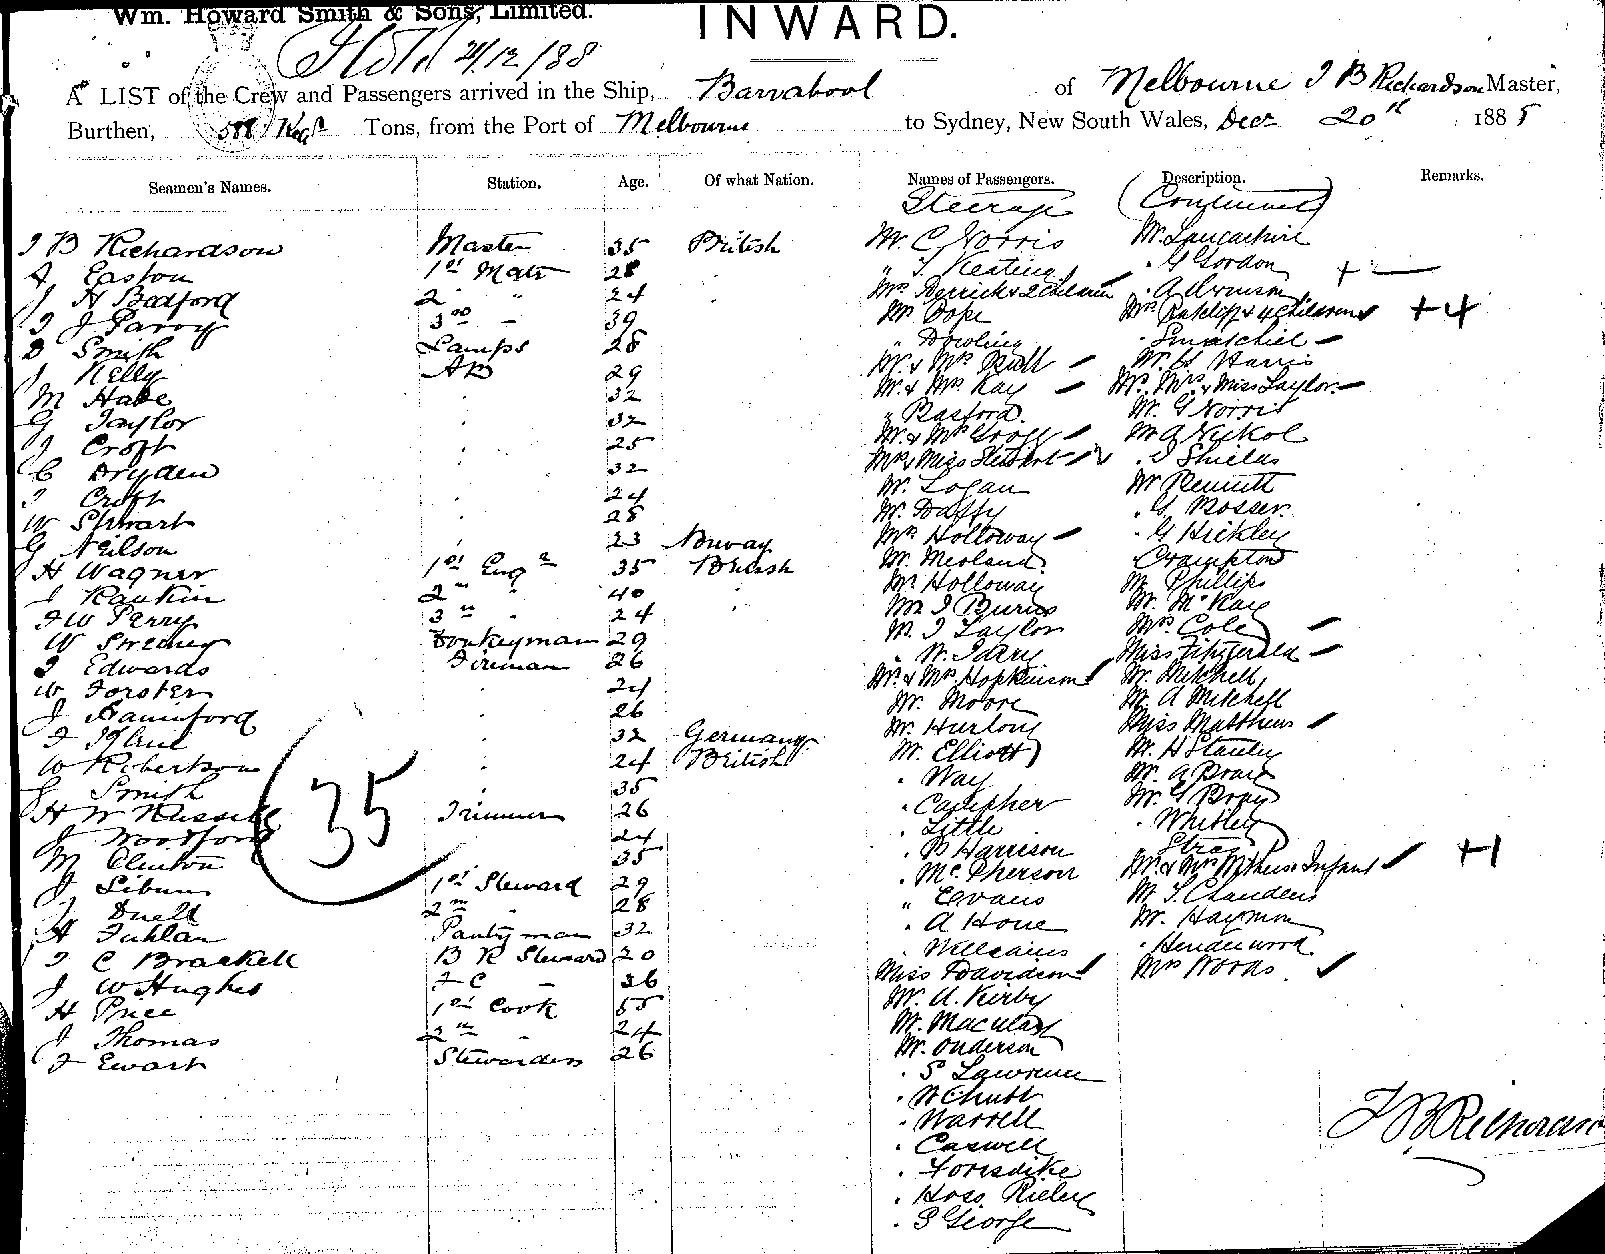 Wm. Howard Smith & Sons, Limited.
INWARD.
21/12/88
A LIST of the Crew and Passengers arrived in the Ship, Barrabool of Melbourne J B Richardson Master,
Burthen, Tons, from the Port of Melbourne to Sydney, New South Wales, Decr 20th 1888
Seamen's Names. Station. Age. Of what Nation. Names of Passengers. Description. Remarks.
Steerage (Continued)
J B Richardson Master 35 British
A Easton 1st Mate 28
J H Bedford 2 " 24
39
D Smith Lamps 28
J Kelly AB 29
M Hade 32
G Taylor 32
J Croft 25
C Dryden 32
J Croft 24
W Stewart 28
G Neilson 23 Norway
H Wagner 1st Engr 35 British
J Rankin 2nd " 40
J W Perry 3rd " 24
W Sweeney Donkeyman 29
J Edwards Fireman 26
W Forster 24
J Bamford 26
32 Germany
W Robertson 24 British
G Smith 35
H W Russell Trimmer 26
J Woodford 24
M Clinton 35
J Liburn 1st Steward 29
J Duell 2nd " 28
Pantryman 32
J C Brackell B R Steward 20
J W Hughes F C " 26
H Price 1st Cook 55
J Thomas 2nd " 24
J Ewart Stewardess 26
35
Mr. C Norris
" T Keating
Mrs Derrick & 2 Children
Mr Pope
" Dowling
Mr & Mrs Bull
Mr & Mrs Kay
" Basford
Mr & Mrs
Mrs & Miss Stewart
Mr. Logan
Mr. Daffy
Mrs Holloway
Mr.
Mr Holloway
Mr J Burns
Mr. J Taylor
" W.
Mr & Mrs Hopkinson
Mr. Moore
Mr. Hurlong
Mr. Elliott
" Way
" Campher
" Little
" B Harrison
" McPherson
" Evans
" A Hone
" Williams
Miss Davidson
Mr. A. Kirby
Mr. Maculay
Mr. Anderson
" S Lawrence
" W Chubb
" Warrell
" Caswell
" Forisdike
" Hoss Rieley
" S George
Mr. Lancashire
" G Gordon +
" A
Mrs Ratcliff & 4 Children +4
"
Mr. H Harris
Mr. Mrs. & Miss Taylor
Mr. G Norris
Mr A Nickol
" J Shields
Mr Bennett
" G Bosser
" G Hickley
Crampton
Mr Phillips
Mr. McKay
Mrs. Cole
Miss Fitzgerald
Mr. Mitchell
Mr. A Mitchell
Miss Matthews
Mr. H Stanley
Mr. A Bray
Mr. G Bray
" Whitley
Mr & Mrs & Infant +1
Mr. T. Chanders
Mr. Haymon
" Henderwood
Mrs Woods
J B Richardson